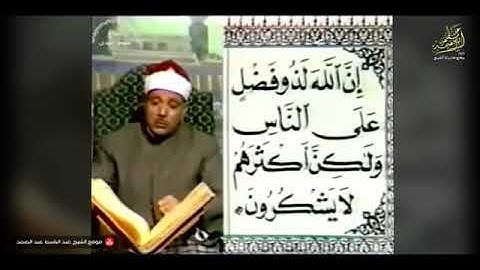 إِنَّ ٱللَّهَ لَذُو فَضْلٍ
عَلَى ٱلنَّاسِ
وَلَـٰكِنَّ أَكْثَرَهُمْ
لَا يَشْكُرُونَ
موقع الشيخ عبد الباسط عبد الصمد